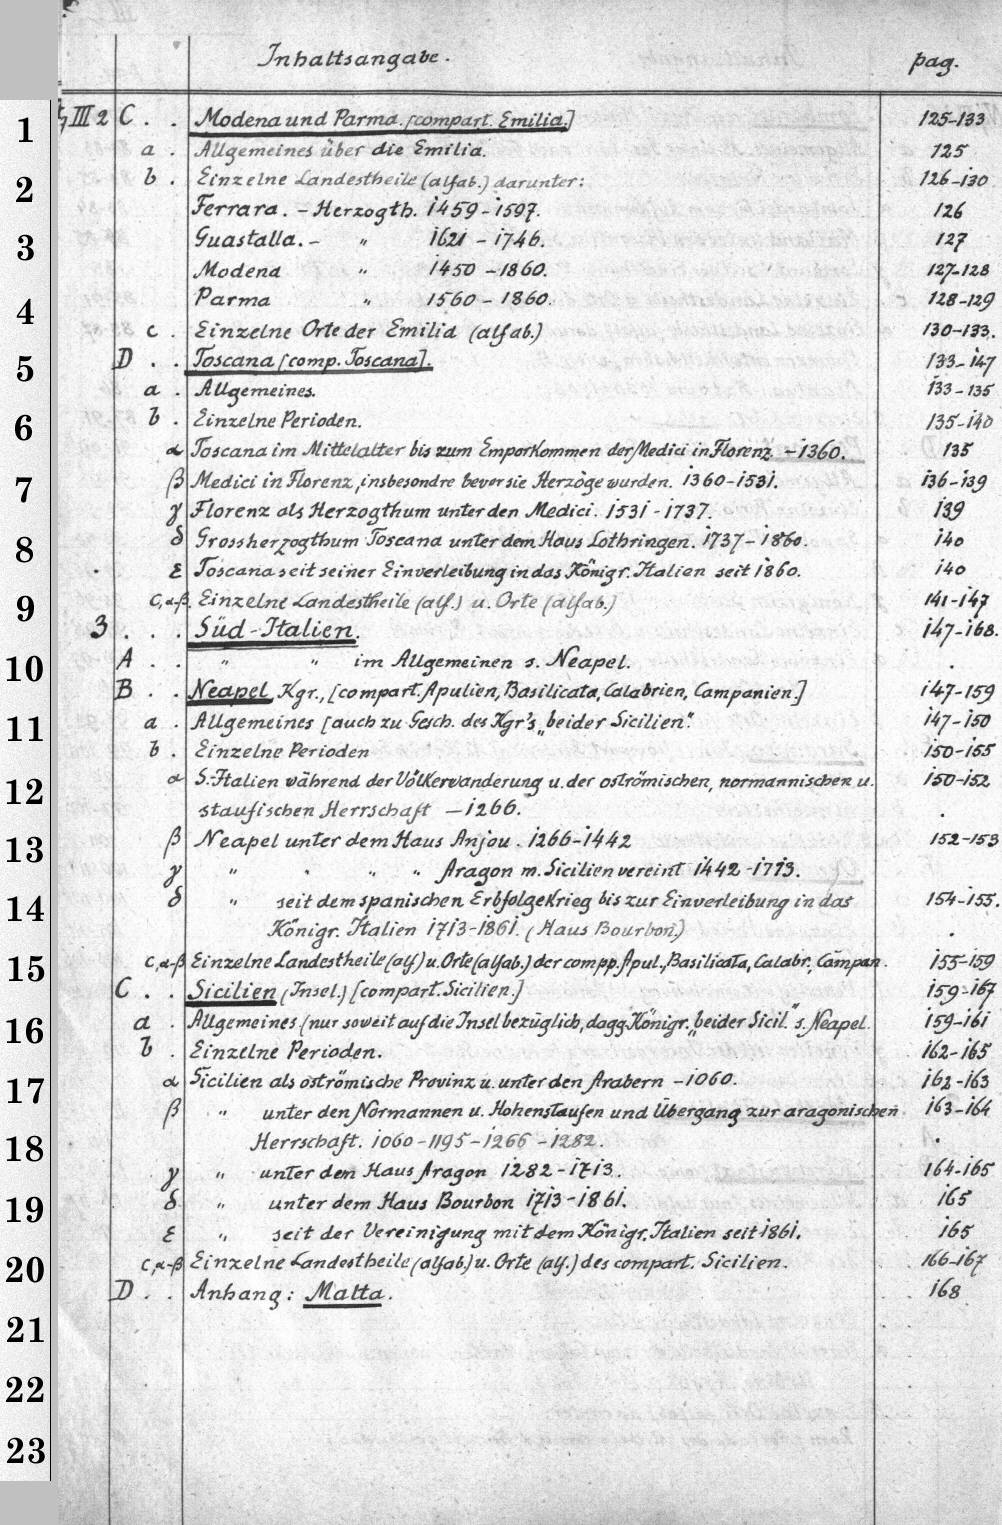 Inhaltsangabe. pag.
1 III 2 C . . Modena und Parma. [compart. Emilia.] 125-133
a . Allgemeines über die Emilia. 125
2 b . Einzelne Landestheile (alfab.) darunter: 126-130
Ferrara. - Herzogth. 1459-1597. 126
3 Guastalla. - " 1621 - 1746. 127
Modena " 1450 - 1860. 127-128
4 Parma " 1560 - 1860. 128-129
c . Einzelne Orte der Emilia (alfab.) 130-133.
5 D . . Toscana [comp. Toscana]. 133-147
a . Allgemeines. 133-135
6 b . Einzelne Perioden. 135-140
α Toscana im Mittelalter bis zum Emporkommen der Medici in Florenz. -1360. 135
7 β Medici in Florenz, insbesondre bevor sie Herzöge wurden. 1360-1531. 136-139
γ Florenz als Herzogthum unter den Medici. 1531-1737. 139
8 δ Grossherzogthum Toscana unter dem Haus Lothringen. 1737-1860. 140
ε Toscana seit seiner Einverleibung in das Königr. Italien seit 1860. 140
9 c,α-β. Einzelne Landestheile (alf.) u. Orte (alfab.) 141-147
3 . . . Süd-Italien. 147-168.
10 A . . " " im Allgemeinen s. Neapel. .
B . . Neapel, Kgr., [compart. Apulien, Basilicata, Calabrien, Campanien.] 147-159
11 a . Allgemeines [auch zu Gesch. des Kgr's „beider Sicilien". 147-150
b . Einzelne Perioden 150-155
12 α S.-Italien während der Völkerwanderung u. der oströmischen, normannischen u. 150-152
staufischen Herrschaft -1266. .
13 β Neapel unter dem Haus Anjou. 1266-1442 152-153
γ " " " " Aragon m. Sicilien vereint 1442-1713.
14 δ " seit dem spanischen Erbfolgekrieg bis zur Einverleibung in das 154-155.
Königr. Italien 1713-1861. (Haus Bourbon.) .
15 c,α-β Einzelne Landestheile (alf) u. Orte (alfab.) der compp. Apul., Basilicata, Calabr., Campan. 155-159
C . . Sicilien (Insel.) [compart. Sicilien.] 159-167
16 a . Allgemeines (nur soweit auf die Insel bezüglich, dagg. Königr. „beider Sicil." s. Neapel. 159-161
b . Einzelne Perioden. 162-165
17 α Sicilien als oströmische Provinz u. unter den Arabern -1060. 162-163
β " unter den Normannen u. Hohenstaufen und Übergang zur aragonischen 163-164
18 Herrschaft. 1060-1195-1266-1282. .
γ " unter dem Haus Aragon 1282-1713. 164-165
19 δ " unter dem Haus Bourbon 1713-1861. 165
ε " seit der Vereinigung mit dem Königr. Italien seit 1861. 165
20 c,α-β Einzelne Landestheile (alfab.) u. Orte (alf.) des compart. Sicilien. 166-167
D . . Anhang: Malta. 168
21
22
23